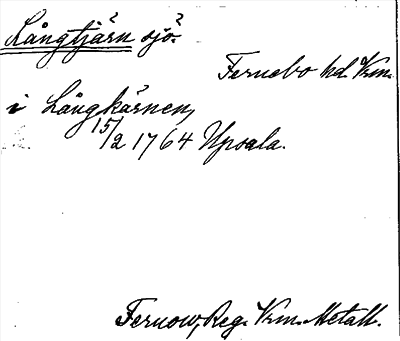 Långtjärn? sjö?
Fernebo hd. Vrm.
i Långkärnen,
15/2 1764 Upsala.
Fernow, Reg. Vrm. Metall.